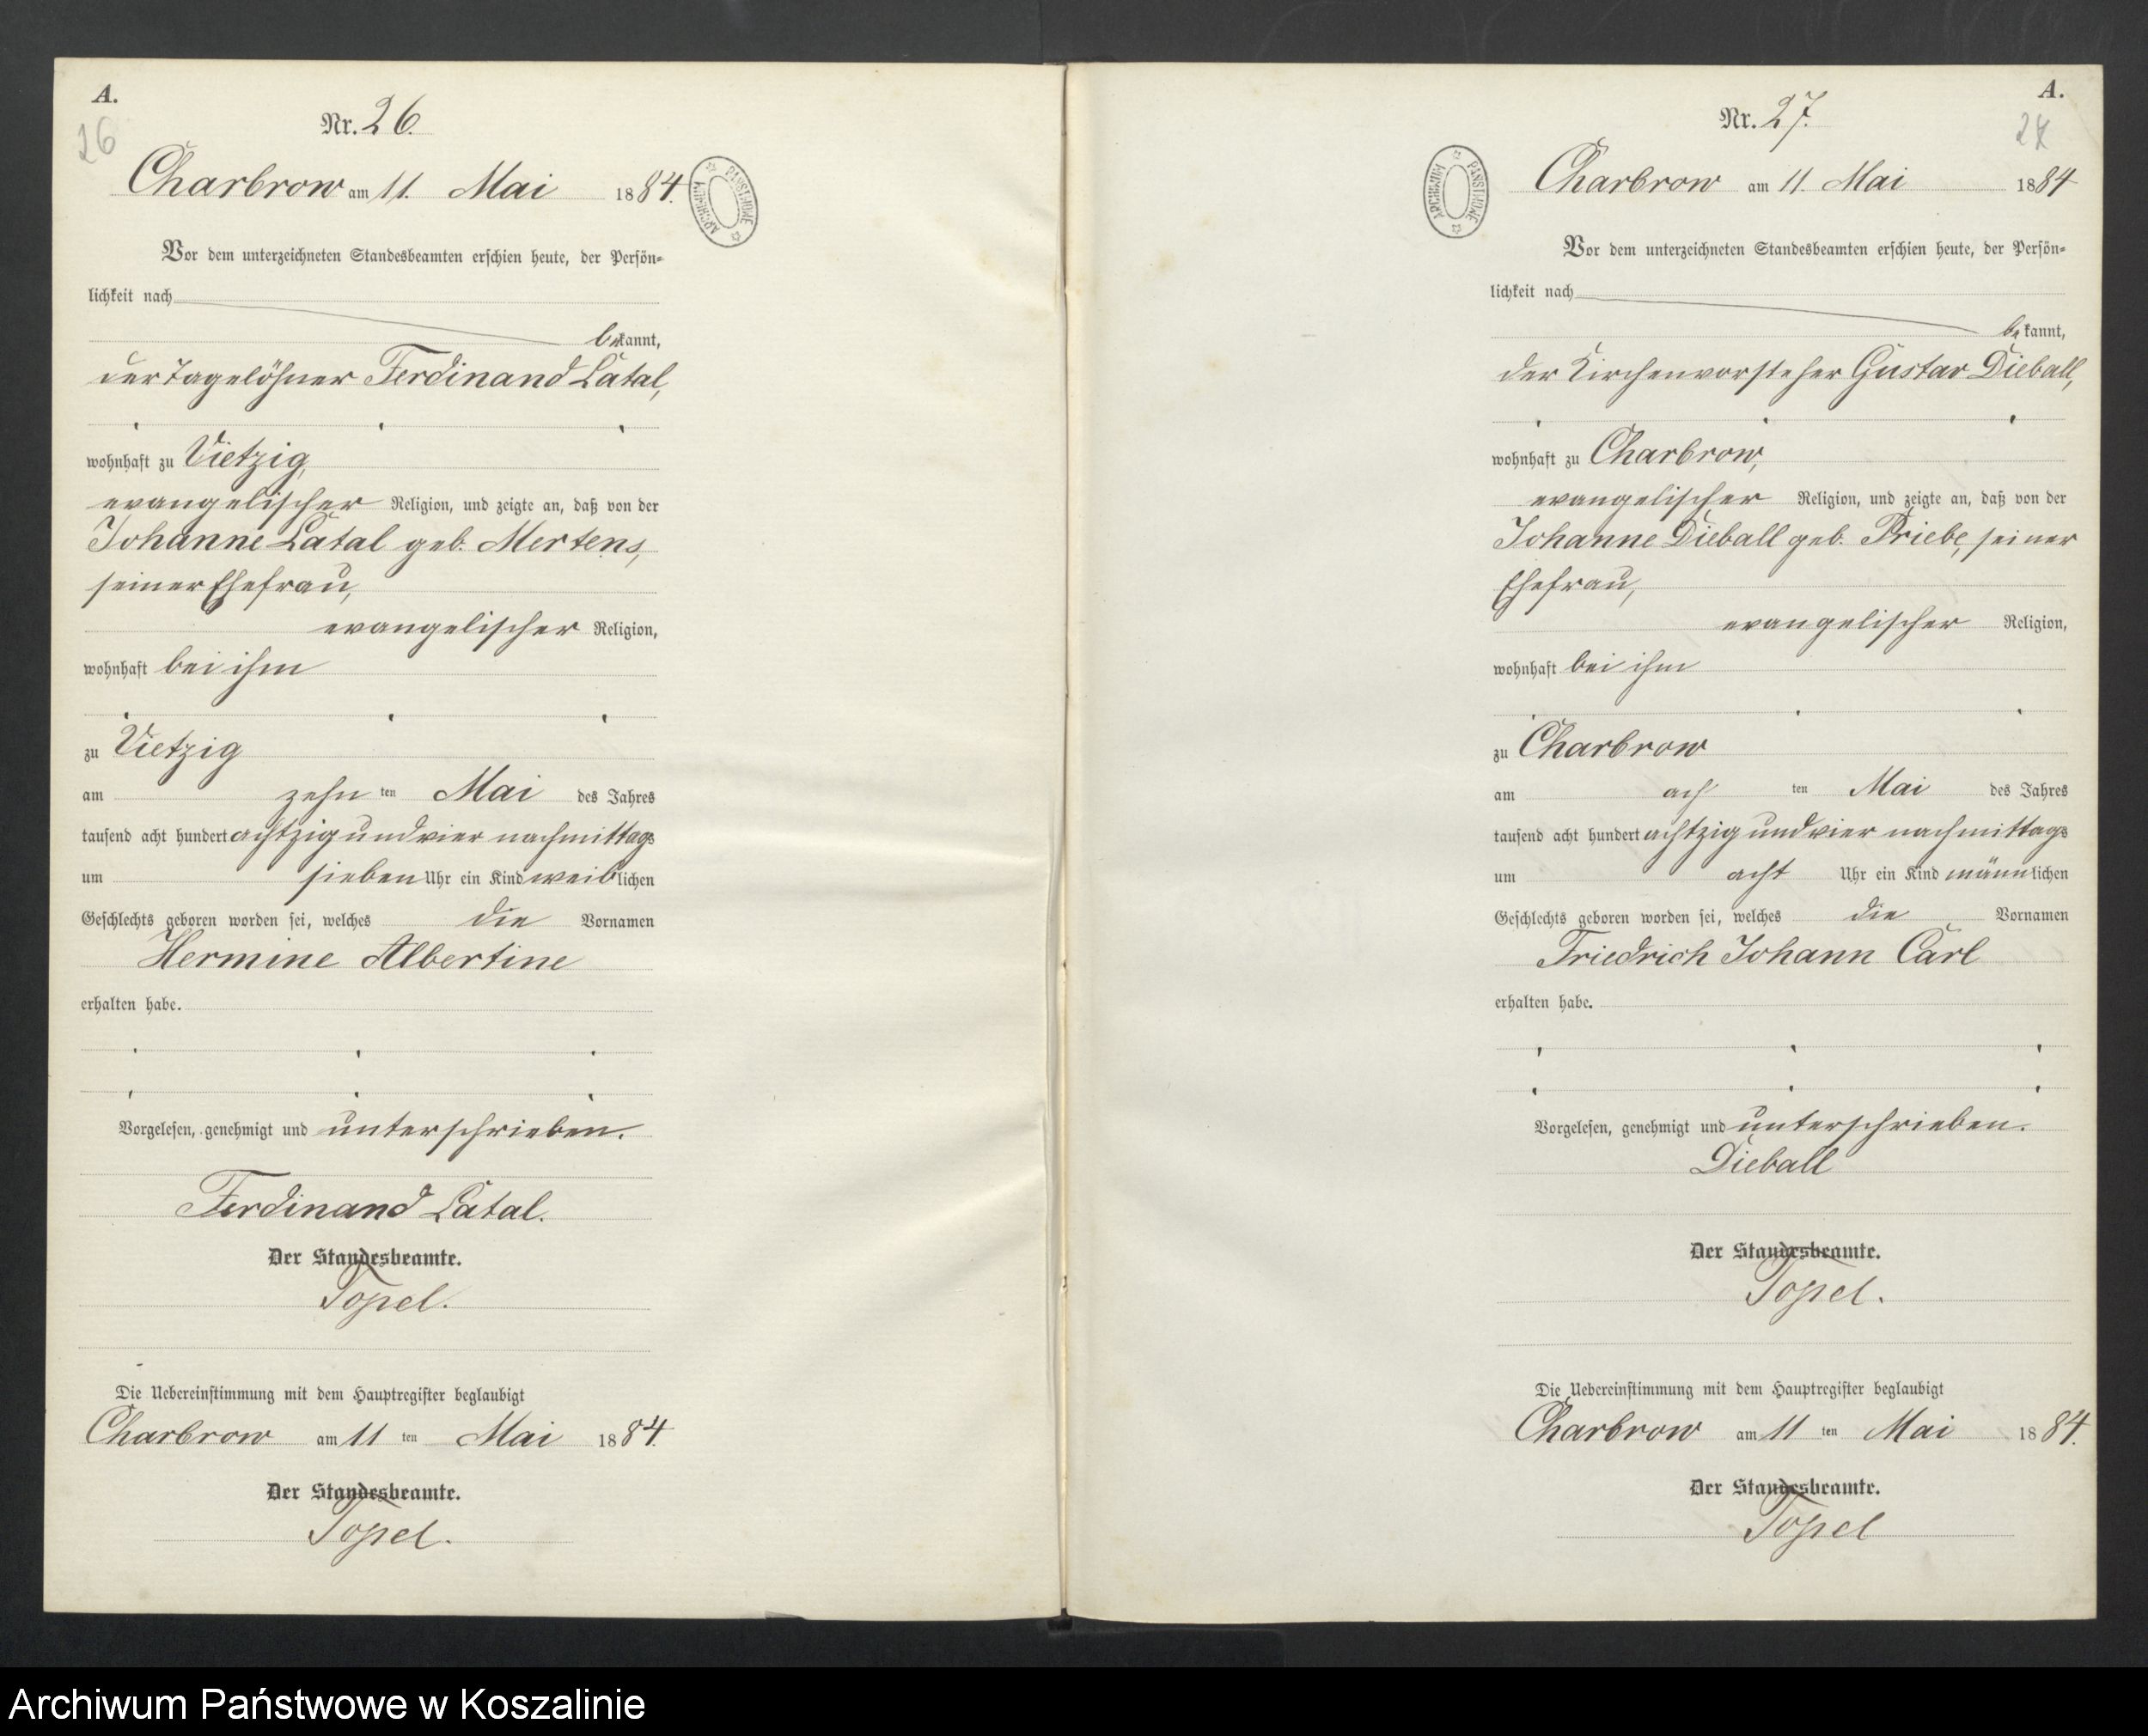 A.
26
Nr. 26.
Charbrow am 11. Mai 1884.
ARCHIWUM PAŃSTWOWE
Vor dem unterzeichneten Standesbeamten erschien heute, der Persön-
lichkeit nach
bekannt,
der Tagelöhner Ferdinand Latal,
wohnhaft zu Vietzig,
evangelischer Religion, und zeigte an, daß von der
Johanne Latal geb. Mertens,
seiner Ehefrau,
evangelischer Religion,
wohnhaft bei ihm
zu Vietzig
am zehn ten Mai des Jahres
tausend acht hundert achtzig und vier nachmittags
um sieben Uhr ein Kind weiblichen
Geschlechts geboren worden sei, welches die Vornamen
Hermine Albertine
erhalten habe.
Vorgelesen, genehmigt und unterschrieben.
Ferdinand Latal.
Der Standesbeamte.
Topel.
Die Uebereinstimmung mit dem Hauptregister beglaubigt
Charbrow am 11 ten Mai 1884.
Der Standesbeamte.
Topel.
A.
27
Nr. 27.
Charbrow am 11. Mai 1884
ARCHIWUM PAŃSTWOWE
Vor dem unterzeichneten Standesbeamten erschien heute, der Persön-
lichkeit nach
bekannt,
der Kirchenvorsteher Gustav Dieball,
wohnhaft zu Charbrow,
evangelischer Religion, und zeigte an, daß von der
Johanne Dieball geb. Priebe, seiner
Ehefrau,
evangelischer Religion,
wohnhaft bei ihm
zu Charbrow
am ach ten Mai des Jahres
tausend acht hundert achtzig und vier nachmittags
um acht Uhr ein Kind männlichen
Geschlechts geboren worden sei, welches die Vornamen
Friedrich Johann Carl
erhalten habe.
Vorgelesen, genehmigt und unterschrieben.
Dieball
Der Standesbeamte.
Topel.
Die Uebereinstimmung mit dem Hauptregister beglaubigt
Charbrow am 11 ten Mai 1884.
Der Standesbeamte.
Topel
Archiwum Państwowe w Koszalinie